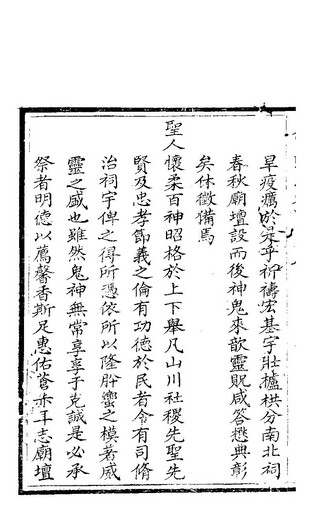 旱疫癘於是乎祈禱宏基宇壯攄栱分南北祠
春秋廟壇設而後神鬼來歆靈貺咸答懋典彰
矣休徵備焉
聖人懷柔百神昭格於上下舉凡山川社稷先聖先
賢及忠孝節義之倫有功德於民者令有司脩
治祠宇俾之得所憑依所以隆肸蠁之模著威
靈之感也雖然鬼神無常享享于克誠是必承
祭者明德以薦馨香斯足惠佑蒼赤下志廟壇